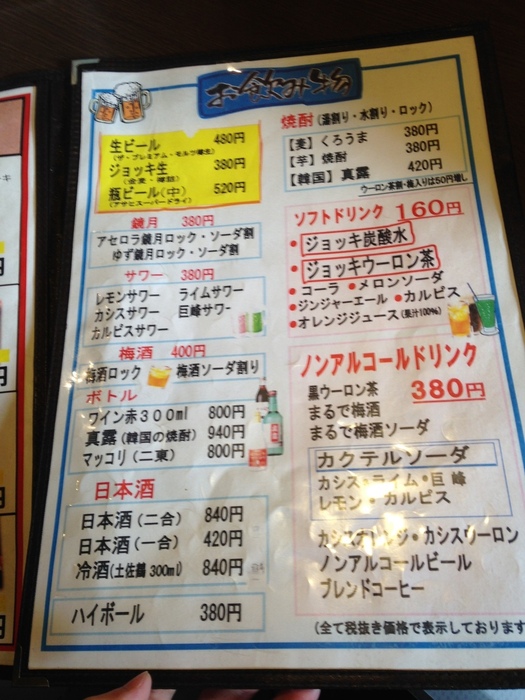 生ビール 480円
(ザ・プレミアム・モルツ樽生)
ジョッキ生 380円
(金麦・樽詰)
瓶ビール(中) 520円
(アサヒスーパードライ)
鏡月 380円
アセロラ鏡月ロック・ソーダ割
ゆず鏡月ロック・ソーダ割
サワー 380円
レモンサワー ライムサワー
カシスサワー 巨峰サワー
カルピスサワー
梅酒 400円
梅酒ロック 梅酒ソーダ割り
ボトル
ワイン赤300ml 800円
真露(韓国の焼酎) 940円
マッコリ(二東) 800円
日本酒
日本酒(二合) 840円
日本酒(一合) 420円
冷酒(土佐鶴 300ml) 840円
ハイボール 380円
焼酎(湯割り・水割り・ロック)
【麦】くろうま 380円
【芋】焼酎 380円
【韓国】真露 420円
ウーロン茶割・梅入りは50円増し
ソフトドリンク 160円
・ジョッキ炭酸水
・ジョッキウーロン茶
・コーラ ・メロンソーダ
・ジンジャーエール ・カルピス
・オレンジジュース(果汁100%)
ノンアルコールドリンク
黒ウーロン茶 380円
まるで梅酒
まるで梅酒ソーダ
カクテルソーダ
カシス・ライム・巨峰
レモン・カルピス
カシスオレンジ・カシスウーロン
ノンアルコールビール
ブレンドコーヒー
(全て税抜き価格で表示しております